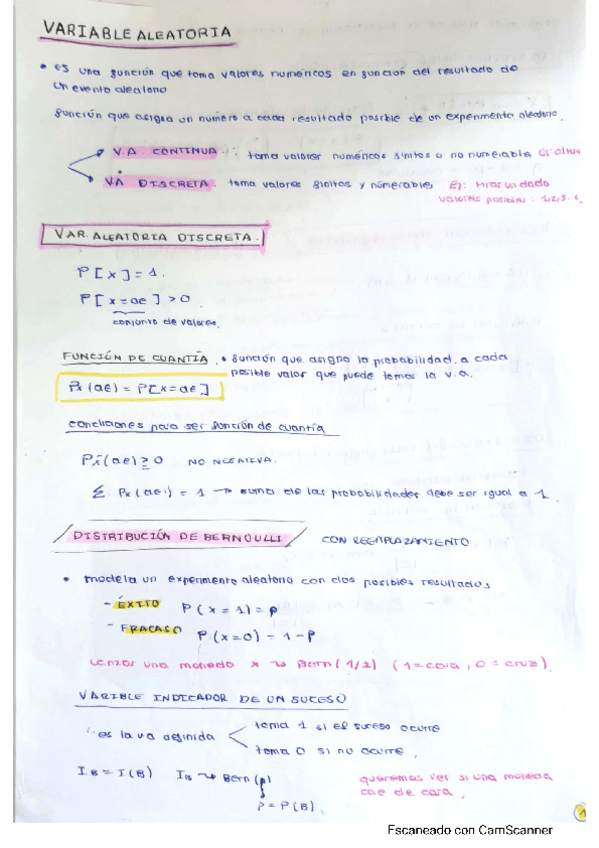 VARIABLE ALEATORIA
• es una función que toma valores numéricos en función del resultado de
un evento aleatorio
función que asigna un número a cada resultado posible de un experimento aleatorio.
V.A. CONTINUA : toma valores numéricos finitos o no numerable Ej: altura
VA DISCRETA. toma valores finitos y númerables Ej: tirar un dado
valores posibles: 1,2,5..6
VAR. ALEATORIA DISCRETA.
P[x]=1.
P[x=ae]>0
conjunto de valores.
FUNCIÓN DE CUANTÍA. • función que asigna la probabilidad. a cada
posible valor que puede tomar la v.a.
Px(ae) = P[x=ae]
condiciones para ser función de cuantía
Px(ae) ≥ 0 NO NEGATIVA.
Σ Px(aei) = 1 → suma de las probabilidades debe ser igual a 1.
DISTRIBUCIÓN DE BERNOULLI CON REEMPLAZAMIENTO
• modela un experimento aleatorio con dos posibles resultados
- ÉXITO P(x=1)=p
- FRACASO P(x=0)=1-p
Lanzar una moneda x ~ Bern(1/2) (1=cara, 0=cruz).
VARIABLE INDICADOR DE UN SUCESO
es la va definida
toma 1 si el suceso ocurre
toma 0 si no ocurre.
IB = I(B) IB ~ Bern(p)
p = P(B).
queremos ver si una moneda
cae de cara.
1
Escaneado con CamScanner